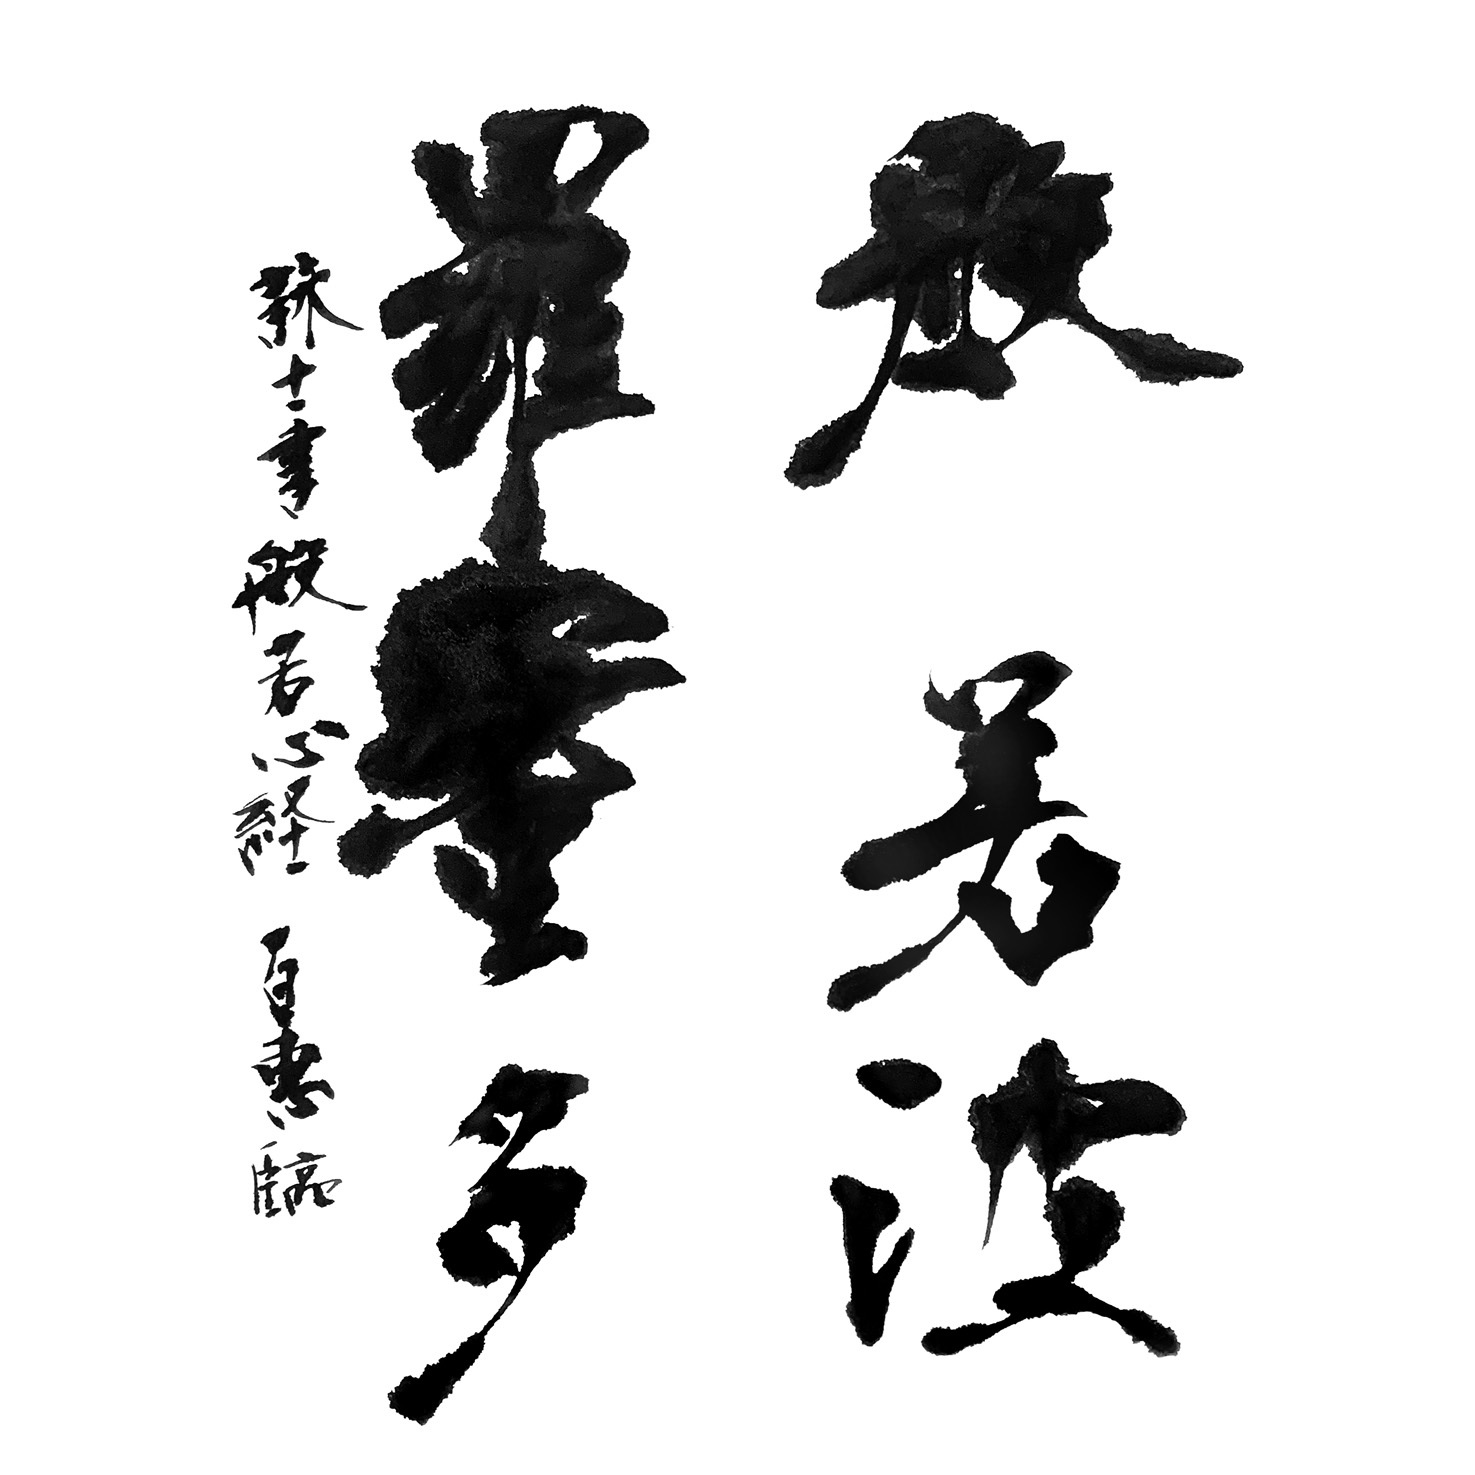 般若波
羅蜜多
書般若心経 百恵臨